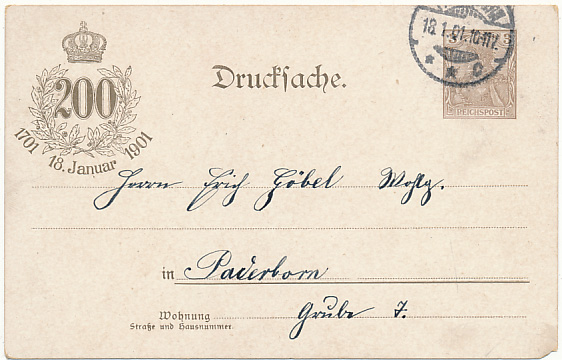 Drucksache.
200
1701 18. Januar 1901
18.1.01.10-11V.
* * c
3
REICHSPOST
Herrn Erich Göbel Wohlg.
in Paderborn
Grube 7.
Wohnung
Straße und Hausnummer.